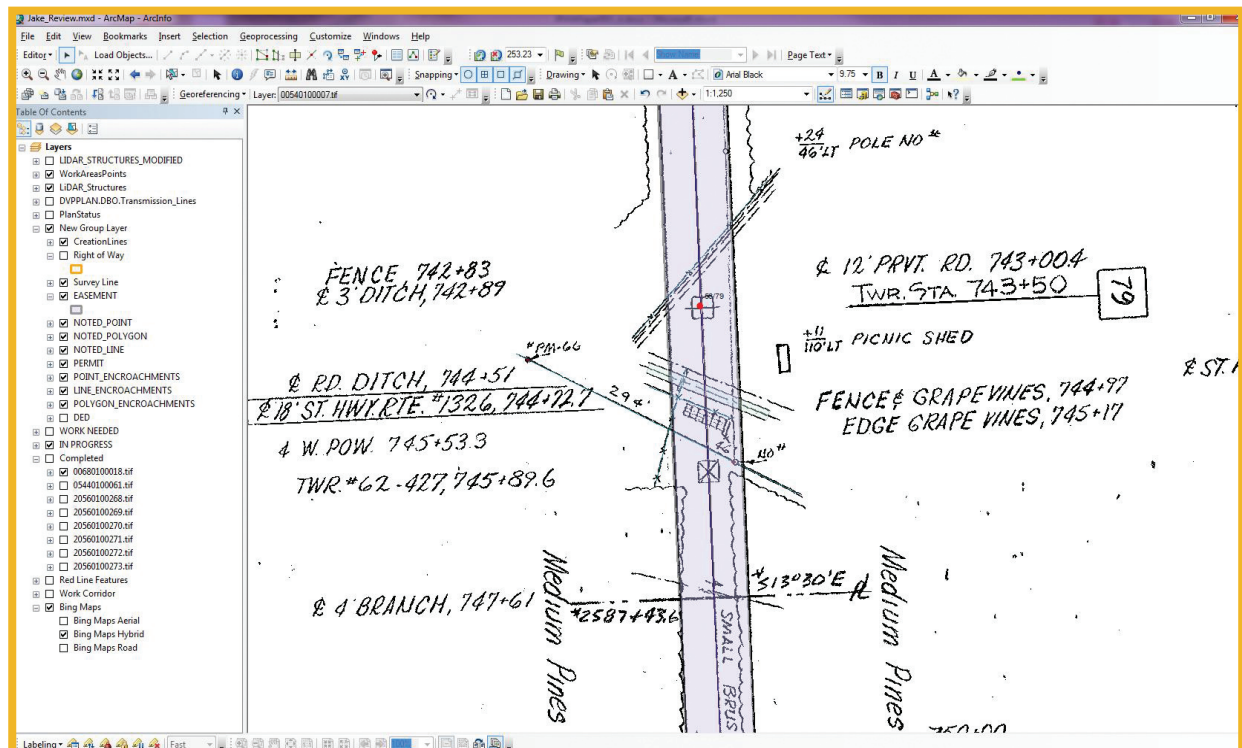 Jake_Review.mxd - ArcMap - ArcInfo
File Edit View Bookmarks Insert Selection Geoprocessing Customize Windows Help
Editor Load Objects... 253.23 Page Text
Snapping Drawing Arial Black 9.75 B I U A
Georeferencing Layer: 00540100007.tif 1:1,250
Table Of Contents
Layers
LIDAR_STRUCTURES_MODIFIED
WorkAreasPoints
LiDAR_Structures
DVPPLAN.DBO.Transmission_Lines
PlanStatus
New Group Layer
CreationLines
Right of Way
Survey Line
EASEMENT
NOTED_POINT
NOTED_POLYGON
NOTED_LINE
PERMIT
POINT_ENCROACHMENTS
LINE_ENCROACHMENTS
POLYGON_ENCROACHMENTS
DED
WORK NEEDED
IN PROGRESS
Completed
00680100018.tif
05440100061.tif
20560100268.tif
20560100269.tif
20560100270.tif
20560100271.tif
20560100272.tif
20560100273.tif
Red Line Features
Work Corridor
Bing Maps
Bing Maps Aerial
Bing Maps Hybrid
Bing Maps Road
Labeling Fast
+24
46'LT POLE NO #
FENCE, 742+83
℄ 3' DITCH, 742+89
℄ 12' PRVT. RD. 743+00.4
TWR. STA. 743+50
79
+11
110'LT PICNIC SHED
#PM-66
℄ RD. DITCH, 744+51
294'
℄ 18' ST. HWY. RTE. #1326, 744+72.7
℄ ST.
FENCE & GRAPEVINES, 744+97
EDGE GRAPE VINES, 745+17
4 W. POW. 745+53.3
46'
NO #
TWR. #62-427, 745+89.6
Medium Pines
Medium Pines
#S13°30'E
℄ 4' BRANCH, 747+61
#2587+43.6
SMALL BRUS
750+00